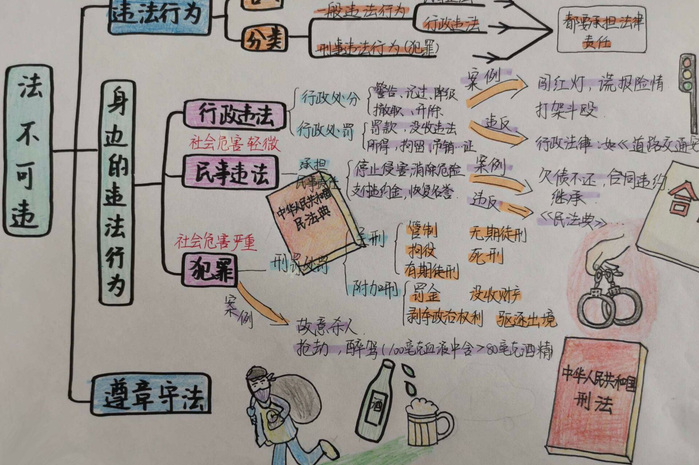 违法行为
分类
一般违法行为
行政违法
刑事违法行为(犯罪)
都要承担法律
责任
法不可违
身边的违法行为
行政违法
社会危害轻微
行政处分
警告、记过、降级
撤职、开除
行政处罚
罚款、没收违法
所得、拘留、吊销证
案例
闯红灯,谎报险情
打架斗殴
违反
行政法律:如《道路交通
民事违法
承担
民事责任
停止侵害 消除危险
支付违约金,恢复名誉
案例
欠债不还,合同违约
继承
违反
《民法典》
中华人民共和国
民法典
合
社会危害严重
犯罪
刑罚处罚
主刑
管制
无期徒刑
拘役
死刑
有期徒刑
附加刑
罚金
没收财产
剥夺政治权利
驱逐出境
案例
故意杀人
抢劫,醉驾(100毫克血液中含>80毫克酒精
酒
中华人民共和国
刑法
遵章守法